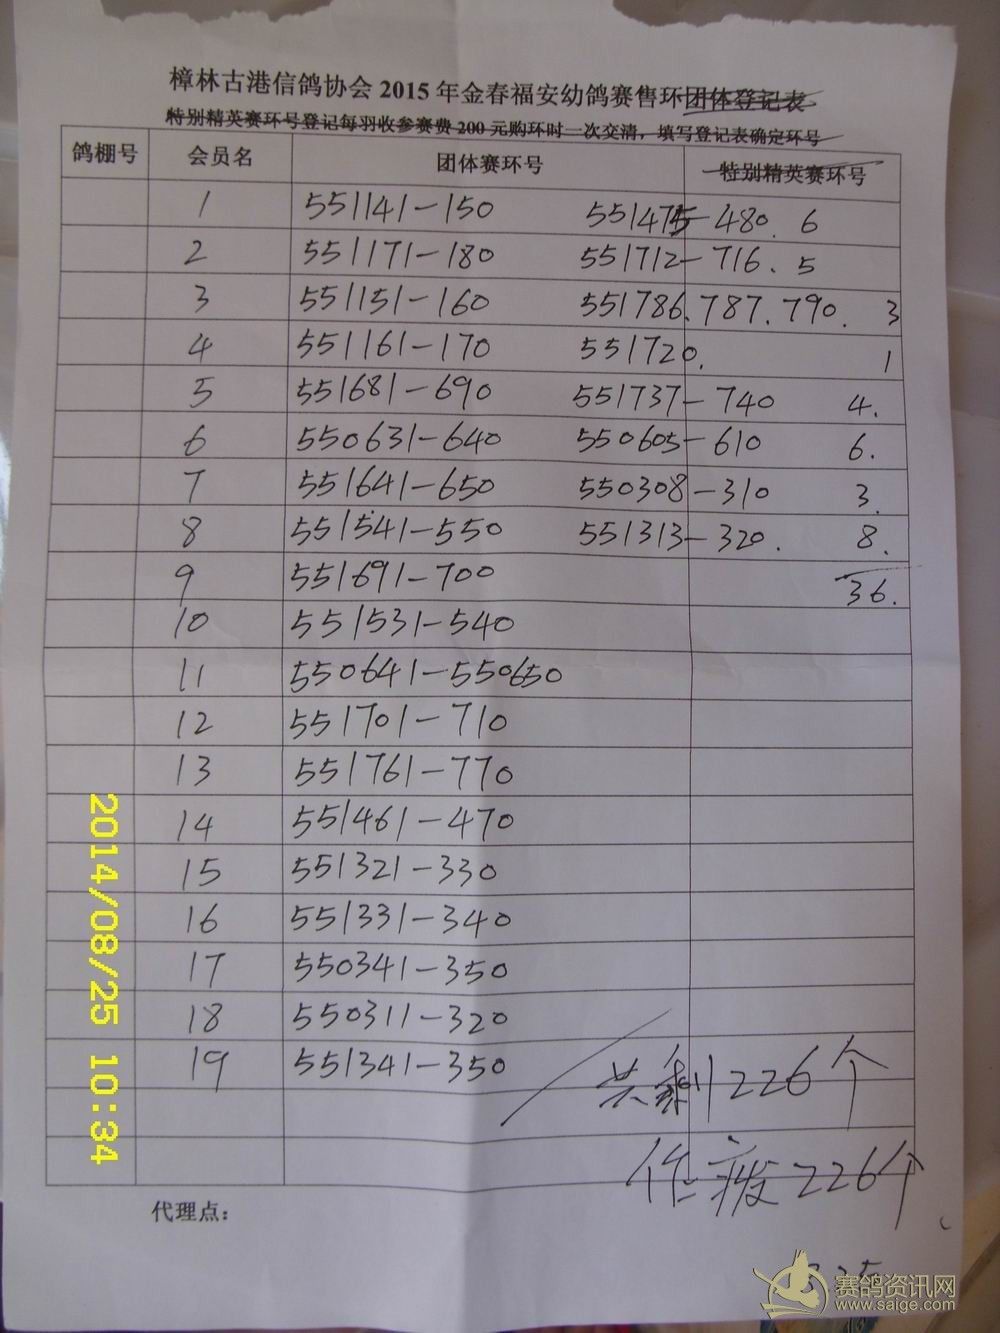 樟林古港信鸽协会2015年金春福安幼鸽赛售环团体登记表
特别精英赛环号登记每羽收参赛费200元购环时一次交清，填写登记表确定环号
鸽棚号 会员名 团体赛环号 特别精英赛环号
1 551141-150 551475-480. 6
2 551171-180 551712-716. 5
3 551151-160 551786.787.790. 3
4 551161-170 551720. 1
5 551681-690 551737-740 4.
6 550631-640 550605-610 6.
7 551641-650 550308-310 3.
8 551541-550 551313-320. 8.
9 551691-700 36.
10 551531-540
11 550641-550650
12 551701-710
13 551761-770
14 551461-470
15 551321-330
16 551331-340
17 550341-350
18 550311-320
19 551341-350
共剩226个
作废226个
代理点：
2014/08/25 10:34
赛鸽资讯网
www.saige.com